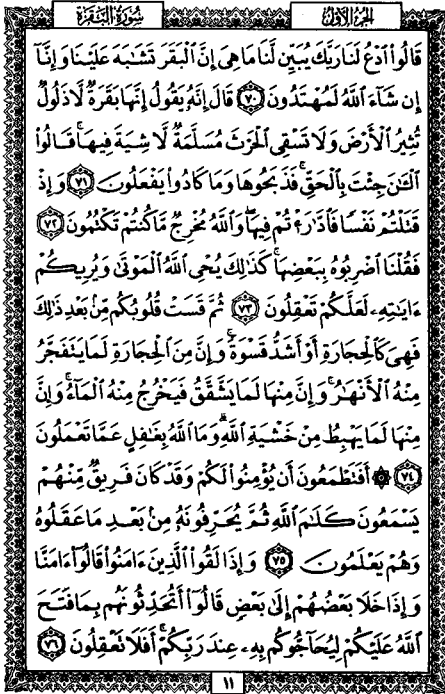 الجزء الأول سورة البقرة
قَالُوا۟ ٱدْعُ لَنَا رَبَّكَ يُبَيِّن لَّنَا مَا هِىَ إِنَّ ٱلْبَقَرَ تَشَٰبَهَ عَلَيْنَا وَإِنَّآ
إِن شَآءَ ٱللَّهُ لَمُهْتَدُونَ ٧٠ قَالَ إِنَّهُۥ يَقُولُ إِنَّهَا بَقَرَةٌ لَّا ذَلُولٌ
تُثِيرُ ٱلْأَرْضَ وَلَا تَسْقِى ٱلْحَرْثَ مُسَلَّمَةٌ لَّا شِيَةَ فِيهَا ۚ قَالُوا۟
ٱلْـَٰٔنَ جِئْتَ بِٱلْحَقِّ ۚ فَذَبَحُوهَا وَمَا كَادُوا۟ يَفْعَلُونَ ٧١ وَإِذْ
قَتَلْتُمْ نَفْسًا فَٱدَّٰرَْٰٔتُمْ فِيهَا ۖ وَٱللَّهُ مُخْرِجٌ مَّا كُنتُمْ تَكْتُمُونَ ٧٢
فَقُلْنَا ٱضْرِبُوهُ بِبَعْضِهَا ۚ كَذَٰلِكَ يُحْىِ ٱللَّهُ ٱلْمَوْتَىٰ وَيُرِيكُمْ
ءَايَٰتِهِۦ لَعَلَّكُمْ تَعْقِلُونَ ٧٣ ثُمَّ قَسَتْ قُلُوبُكُم مِّنۢ بَعْدِ ذَٰلِكَ
فَهِىَ كَٱلْحِجَارَةِ أَوْ أَشَدُّ قَسْوَةً ۚ وَإِنَّ مِنَ ٱلْحِجَارَةِ لَمَا يَتَفَجَّرُ
مِنْهُ ٱلْأَنْهَٰرُ ۚ وَإِنَّ مِنْهَا لَمَا يَشَّقَّقُ فَيَخْرُجُ مِنْهُ ٱلْمَآءُ ۚ وَإِنَّ
مِنْهَا لَمَا يَهْبِطُ مِنْ خَشْيَةِ ٱللَّهِ ۗ وَمَا ٱللَّهُ بِغَٰفِلٍ عَمَّا تَعْمَلُونَ
٧٤ ۞ أَفَتَطْمَعُونَ أَن يُؤْمِنُوا۟ لَكُمْ وَقَدْ كَانَ فَرِيقٌ مِّنْهُمْ
يَسْمَعُونَ كَلَٰمَ ٱللَّهِ ثُمَّ يُحَرِّفُونَهُۥ مِنۢ بَعْدِ مَا عَقَلُوهُ
وَهُمْ يَعْلَمُونَ ٧٥ وَإِذَا لَقُوا۟ ٱلَّذِينَ ءَامَنُوا۟ قَالُوٓا۟ ءَامَنَّا
وَإِذَا خَلَا بَعْضُهُمْ إِلَىٰ بَعْضٍ قَالُوٓا۟ أَتُحَدِّثُونَهُم بِمَا فَتَحَ
ٱللَّهُ عَلَيْكُمْ لِيُحَآجُّوكُم بِهِۦ عِندَ رَبِّكُمْ ۚ أَفَلَا تَعْقِلُونَ ٧٦
١١